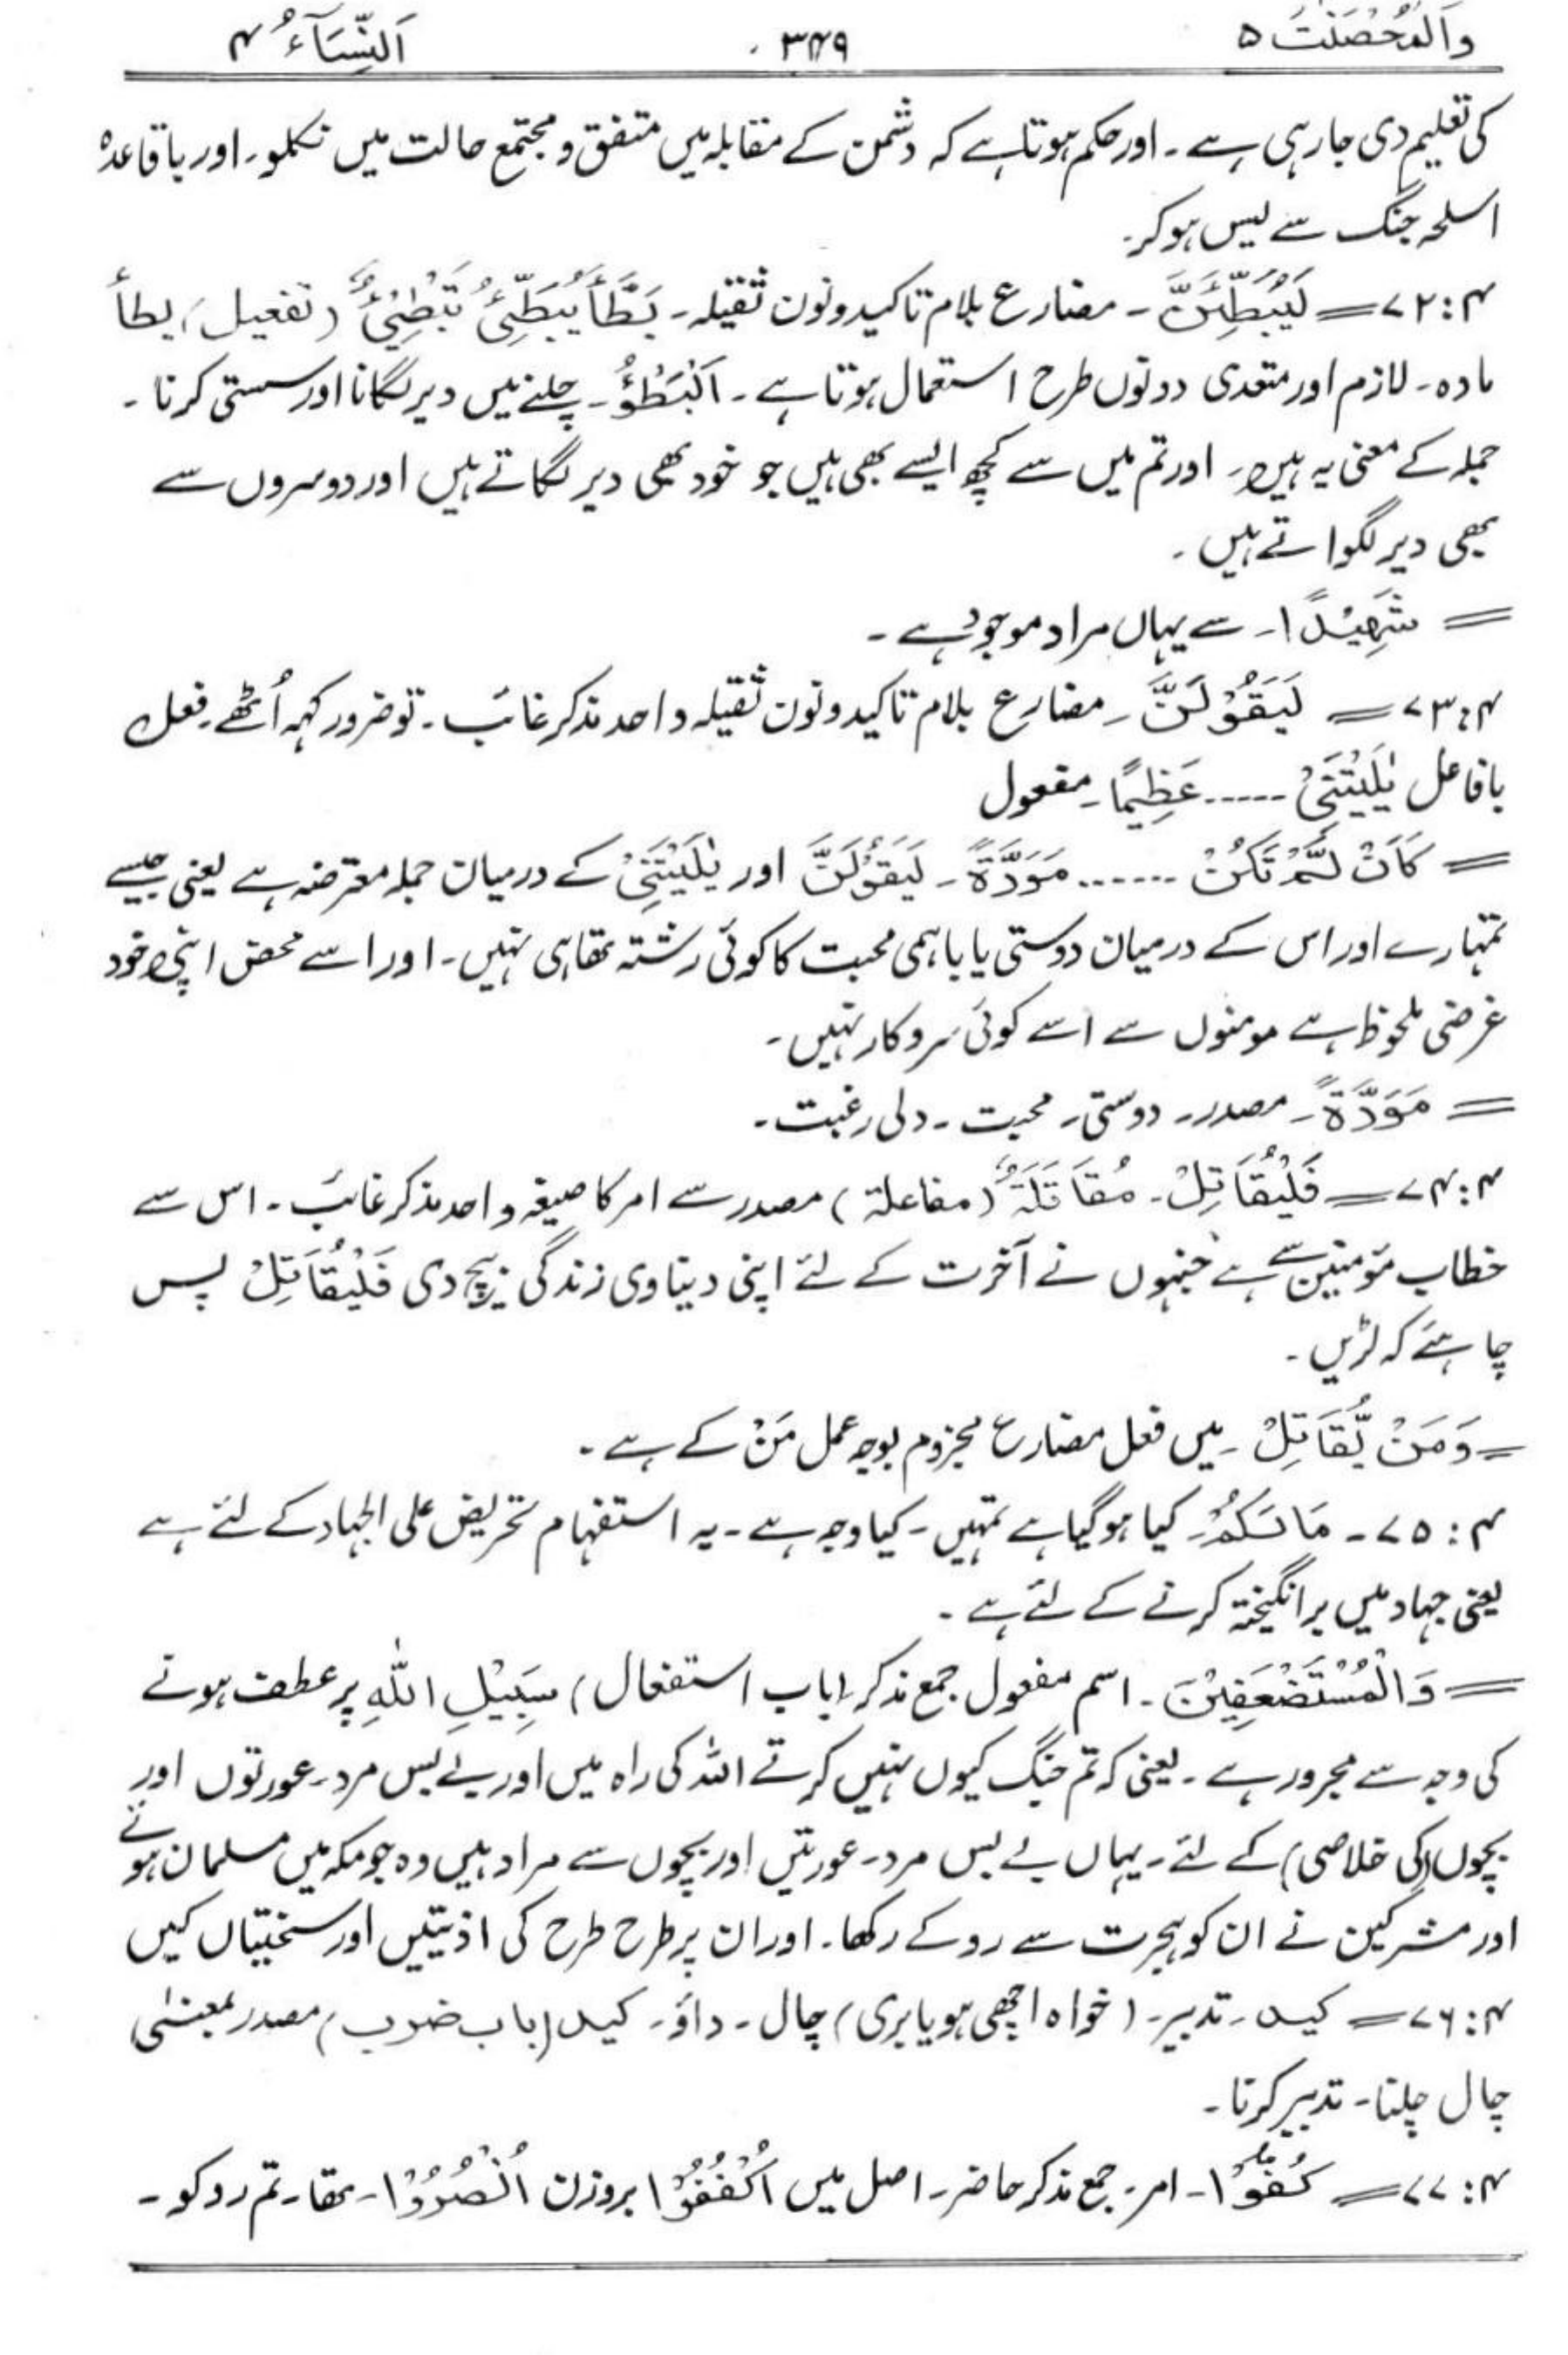 وَالْمُحْصَنٰتُ ۵ ۳۴۹ اَلنِّسَآءُ ۴
کی تعلیم دی جارہی ہے۔ اور حکم ہوتا ہے کہ دشمن کے مقابلہ میں متفق و مجتمع حالت میں نکلو۔ اور باقاعدہ
اسلحہ جنگ سے لیس ہوکر۔
۴:۷۲ = لَيُبَطِّئَنَّ ۔ مضارع بلام تاکید و نون ثقیلہ۔ بَطَّأَ يُبَطِّئُ تَبْطِيْئٌ (تفعیل) بطأ
مادہ۔ لازم اور متعدی دونوں طرح استعمال ہوتا ہے۔ اَلْبَطْؤُ۔ چلنے میں دیر لگانا اور سستی کرنا۔
جملہ کے معنی یہ ہیں۔ اور تم میں سے کچھ ایسے بھی ہیں جو خود بھی دیر لگاتے ہیں اور دوسروں سے
بھی دیر لگواتے ہیں۔
= شَهِيْدًا۔ سے یہاں مراد موجود ہے۔
۴:۷۳ = لَيَقُوْلَنَّ ۔ مضارع بلام تاکید و نون ثقیلہ واحد مذکر غائب۔ تو ضرور کہہ اُٹھے۔ فعل
بافاعل يٰلَيْتَنِىْ ..... عَظِيْمًا۔ مفعول
= كَاَنْ لَّمْ تَكُنْ ...... مَوَدَّةٌ ۔ لَيَقُوْلَنَّ اور يٰلَيْتَنِىْ کے درمیان جملہ معترضہ ہے یعنی جیسے
تمہارے اور اس کے درمیان دوستی یا باہمی محبت کا کوئی رشتہ تھا ہی نہیں۔ اور اسے محض اپنی خود
غرضی ملحوظ ہے مومنوں سے اسے کوئی سروکار نہیں۔
= مَوَدَّةٌ ۔ مصدر۔ دوستی۔ محبت۔ دلی رغبت۔
۴:۷۴ = فَلْيُقَاتِلْ ۔ مُقَاتَلَةٌ (مفاعلة) مصدر سے امر کا صیغہ واحد مذکر غائب۔ اس سے
خطاب مؤمنین سے ہے جنہوں نے آخرت کے لئے اپنی دیناوی زندگی بیچ دی فَلْيُقَاتِلْ پس
چاہئے کہ لڑیں۔
= وَمَنْ يُّقَاتِلْ ۔ میں فعل مضارع مجزوم بوجہ عمل مَنْ کے ہے۔
۴:۷۵ ۔ مَا لَكُمْ۔ کیا ہوگیا ہے تمہیں۔ کیا وجہ ہے۔ یہ استفہام تحریض علی الجہاد کے لئے ہے
یعنی جہاد میں برانگیختہ کرنے کے لئے ہے۔
= وَالْمُسْتَضْعَفِيْنَ ۔ اسم مفعول جمع مذکر (باب استفعال) سَبِيْلِ اللّٰهِ پر عطف ہونے
کی وجہ سے مجرور ہے۔ یعنی کہ تم جنگ کیوں نہیں کرتے اللہ کی راہ میں اور بے بس مرد۔ عورتوں اور
بچوں (کی خلاصی) کے لئے۔ یہاں بے بس مرد۔ عورتیں اور بچوں سے مراد ہیں وہ جو مکہ میں مسلمان ہوئے
اور مشرکین نے ان کو ہجرت سے روکے رکھا۔ اور ان پر طرح طرح کی اذیتیں اور سختیاں کیں
۴:۷۶ = کید۔ تدبیر۔ (خواہ اچھی ہو یا بری) چال۔ داؤ۔ کید (باب ضرب) مصدر بمعنیٰ
چال چلنا۔ تدبیر کرنا۔
۴:۷۷ = كُفُّوْا۔ امر۔ جمع مذکر حاضر۔ اصل میں اُكْفُفُوْا بروزن اُنْصُرُوْا۔ تھا۔ تم روکو۔